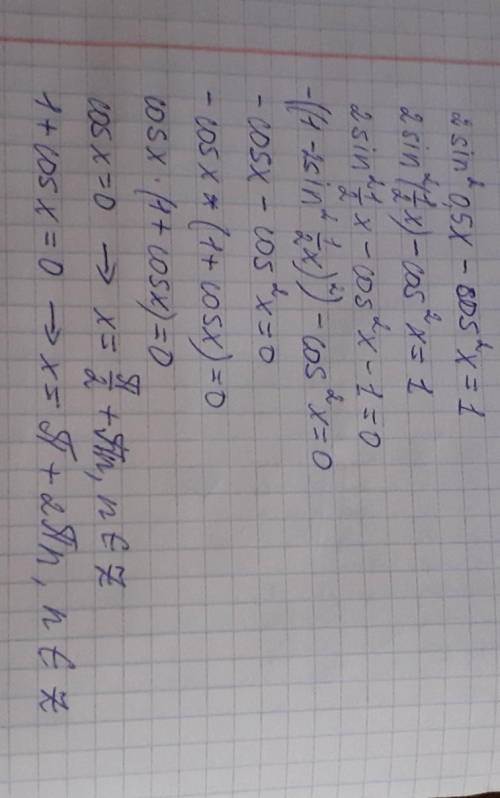 2sin² 0,5x - cos²x = 1
2sin²(½x) - cos²x = 1
2sin²½x - cos²x - 1 = 0
-((1 - 2sin²½x)²) - cos²x = 0
-cosx - cos²x = 0
-cosx * (1 + cosx) = 0
cosx · (1 + cosx) = 0
cosx = 0 → x = π/2 + πn, n ∈ Z
1 + cosx = 0 → x = π + 2πn, n ∈ Z